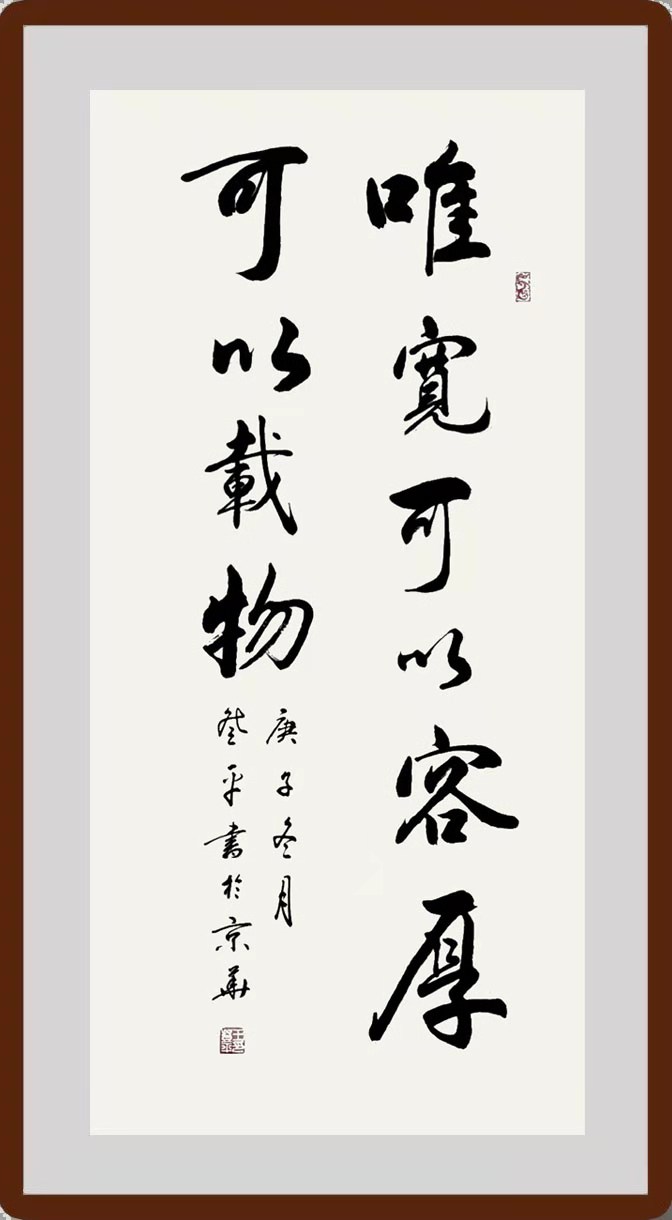 唯寬可以容厚
可以載物
庚子冬月
平書於京華